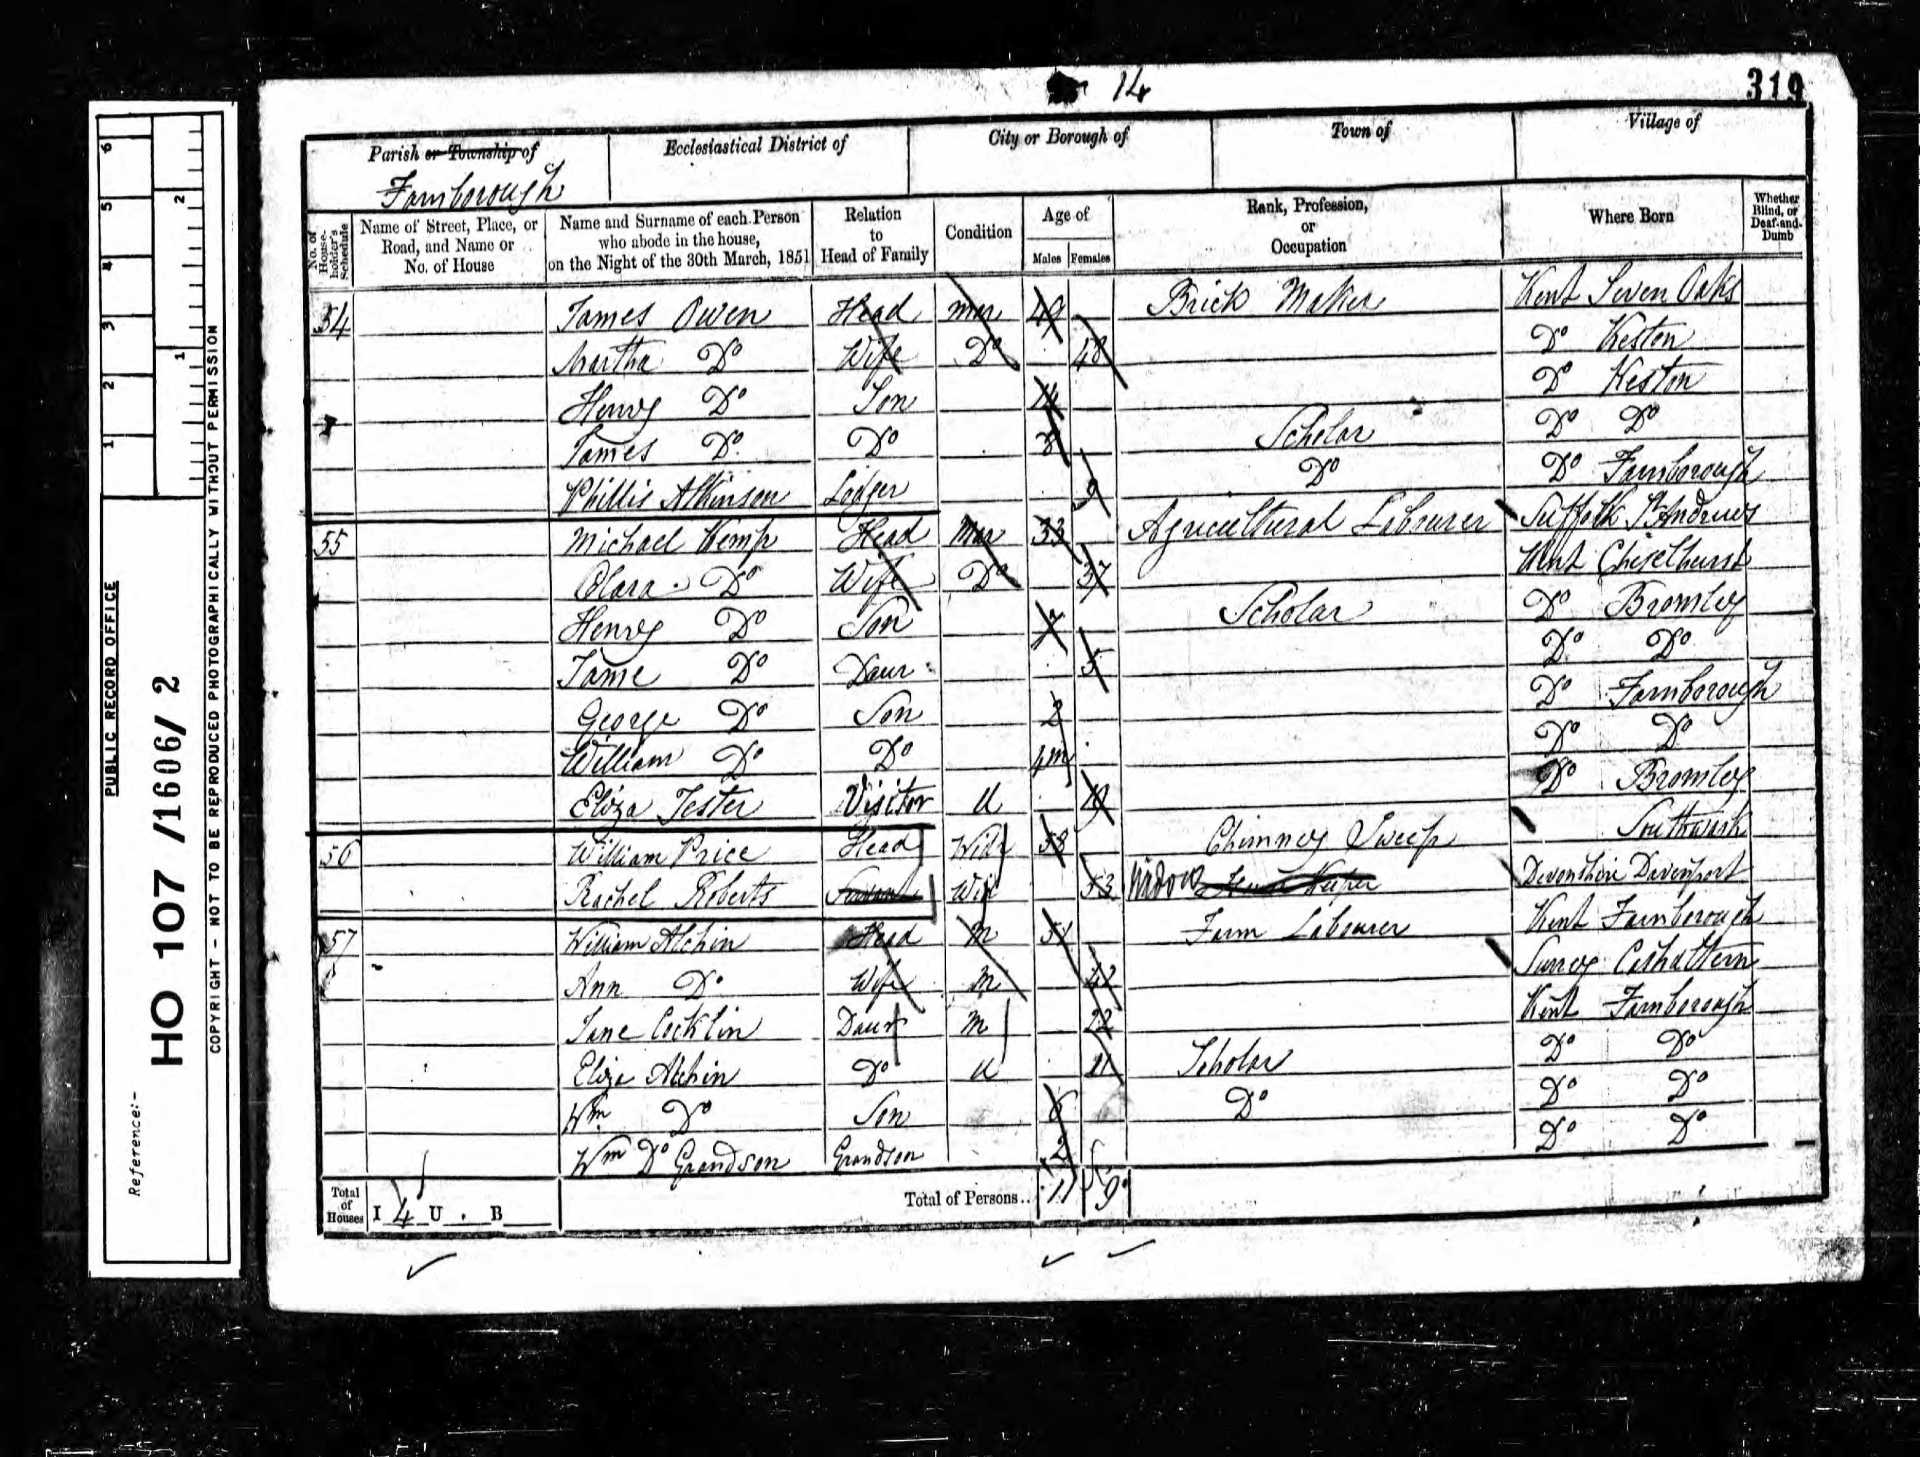 14
319
Parish or Township of
Farnborough
Ecclesiastical District of
City or Borough of
Town of
Village of
No. of House-holder's Schedule
Name of Street, Place, or Road, and Name or No. of House
Name and Surname of each Person who abode in the house, on the Night of the 30th March, 1851
Relation to Head of Family
Condition
Age of
Males Females
Rank, Profession, or Occupation
Where Born
Whether Blind, or Deaf-and-Dumb
54 James Owen Head Mar 49 Brick Maker Kent Seven Oaks
Martha Do Wife Do 48 Do Keston
Henry Do Son 14 Do Keston
James Do Do 8 Scholar Do Do
Phillis Atkinson Lodger 9 Do Do Farnborough
55 Michael Kemp Head Mar 33 Agricultural Labourer Suffolk St Andrews
Clara Do Wife Do 37 Kent Chiselhurst
Henry Do Son 7 Scholar Do Bromley
Jane Do Daur 5 Do Do
George Do Son 2 Do Farnborough
William Do Do 4m Do Do
Eliza Tester Visitor U 19 Do Bromley
56 William Price Head Widr 58 Chimney Sweep Southwark
Rachel Roberts Servant Wid 53 Widow House Keeper Devonshire Davenport
57 William Alchin Head M 51 Farm Labourer Kent Farnborough
Ann Do Wife M 42 Surrey Cashaltern
Jane Cocklin Daur M 22 Kent Farnborough
Eliza Alchin Do U 11 Scholar Do Do
Wm Do Son 6 Do Do Do
Wm Do Grandson Grandson 2 Do Do
Total of Houses I 4 U B
Total of Persons.. 11 9
PUBLIC RECORD OFFICE
Reference:-
HO 107 /1606/ 2
COPYRIGHT - NOT TO BE REPRODUCED PHOTOGRAPHICALLY WITHOUT PERMISSION
1 2 3 4 5 6
1 2